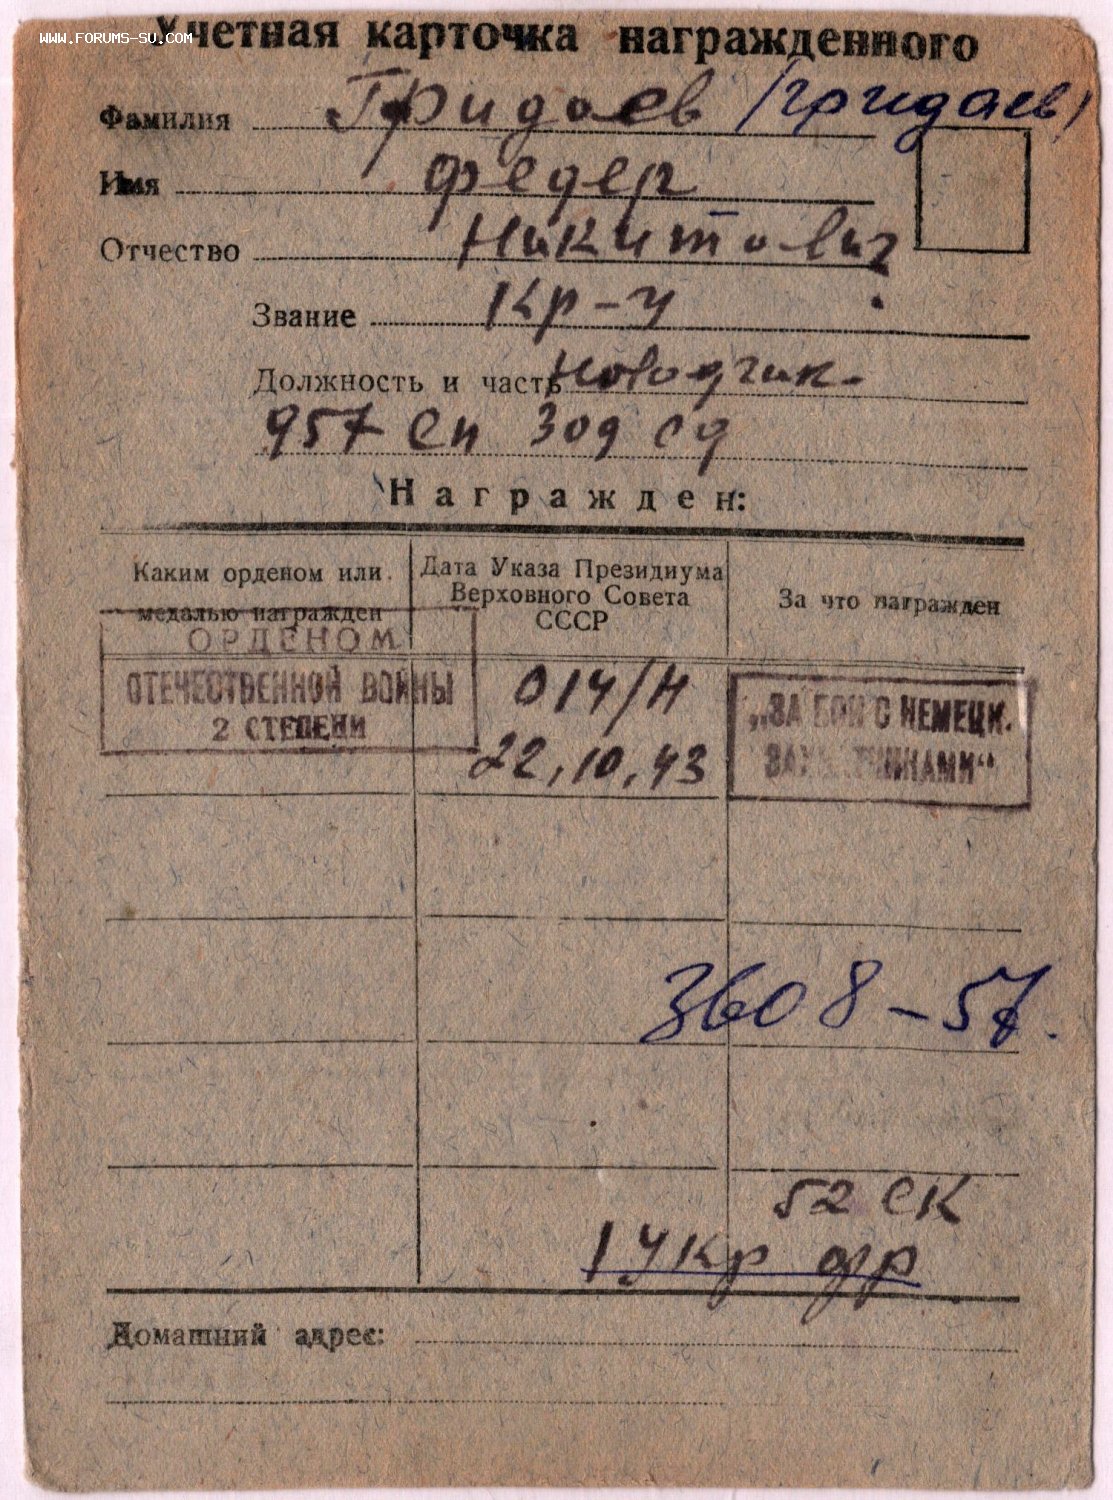 WWW.FORUMS-SU.COM
Учетная карточка награжденного
Фамилия Гридаев /гридаев/
Имя Федер
Отчество Никитович
Звание Кр-ц
Должность и часть
957 сп 309 сд
Награжден:
Каким орденом или медалью награжден
Дата Указа Президиума Верховного Совета СССР
За что награжден
ОРДЕНОМ
ОТЕЧЕСТВЕННОЙ ВОЙНЫ
2 СТЕПЕНИ
014/н
22.10.43
„ЗА БОИ С НЕМЕЦК.
ЗАХВАТЧИКАМИ“
3608-57.
52 СК
1 Укр фр
Домашний адрес: